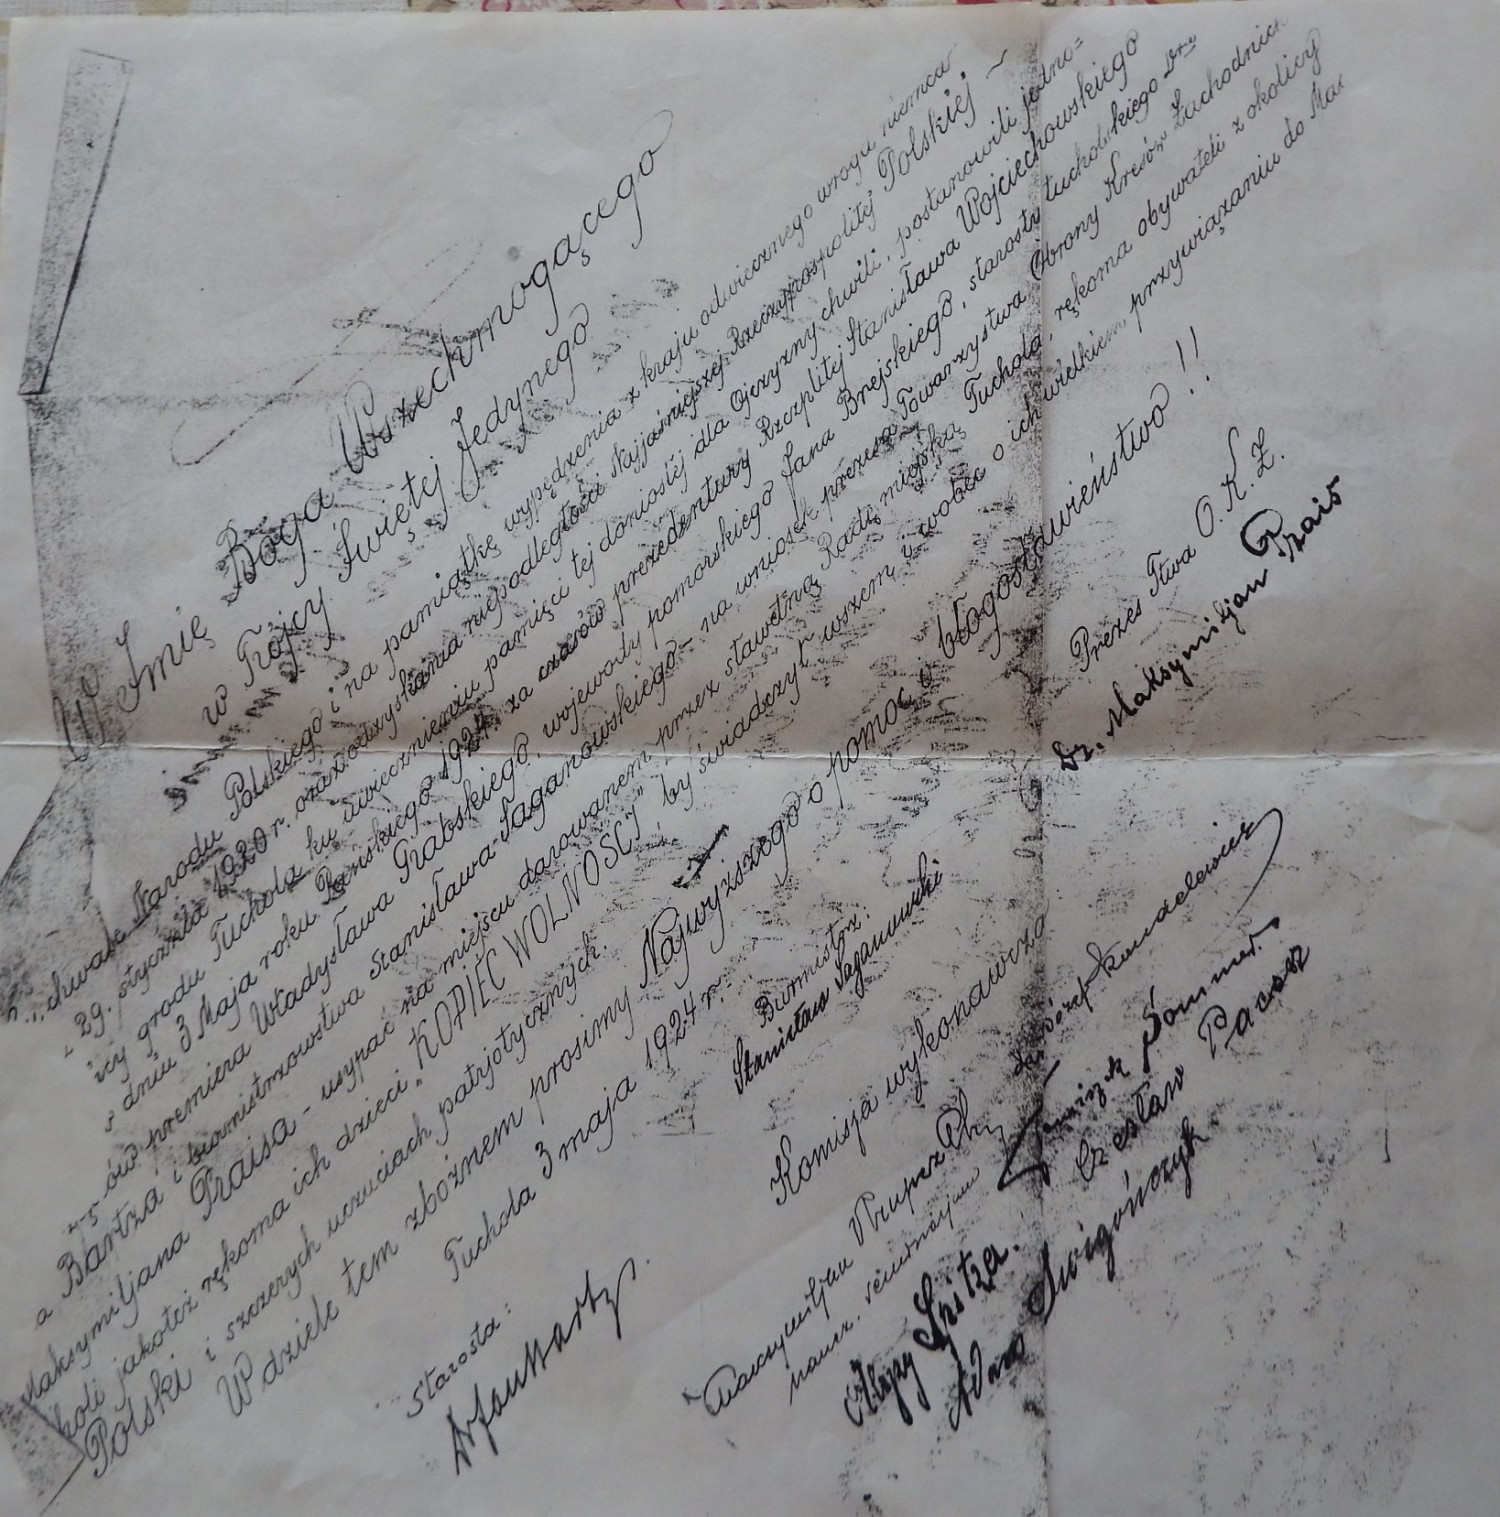 W Imię Boga Wszechmogącego
w Trójcy Świętej Jedynego
chwałę Narodu Polskiego i na pamiątkę wypędzenia z kraju odwiecznego wroga niemca
29. stycznia 1920 r. oraz odzyskania niepodległości Najjaśniejszej Rzeczyrospolitej Polskiej ~
icy grodu Tuchola ku uwiecznieniu pamięci tej doniosłej dla Ojczyzny chwili, postanowili jedno=
dniu 3 Maja roku Pańskiego 1924. za czasów prezedentury Rzczplitej Stanisława Wojciechowskiego
ów premiera Władysława Grabskiego, wojewody pomorskiego Jana Brejskiego, starosty tucholskiego Dra
a Bartza i burmistrzowstwa Stanisława Saganowskiego - na wniosek prezesa Towarzystwa Obrony Kresów Zachodnich
Maksymiljana Praisa - usypać na miejscu darowanem przez sławetną Radę miejską Tuchola, rękoma obywateli z okolicy
koli jakoteż rękoma ich dzieci „KOPIEC WOLNOŚCI" by świadczył wszem i wobec o ich wielkiem przywiązaniu do Mac
Polski i szczerych uczuciach patrjotycznych.
W dziele tem zbożnem prosimy Najwyższego o pomoc i błogosławieństwo !!
Tuchola 3 maja 1924 r.
Starosta:
Burmistrz:
Stanisław Saganowski
Prezes Twa O. K. Z.
Dr. Maksymiljan Prais
Komisja wykonawcza
Józef
naucz. seminarjum
Czesław Pacosz
Alojzy Spitza.